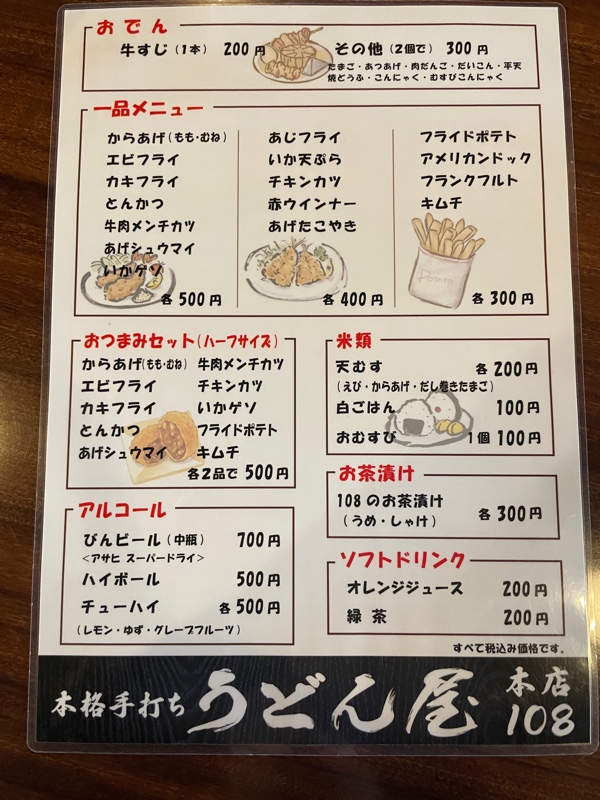 おでん
牛すじ(1本) 200円
その他(2個で) 300円
たまご・あつあげ・肉だんご・だいこん・平天
焼どうふ・こんにゃく・むすびこんにゃく
一品メニュー
からあげ(もも・むね)
エビフライ
カキフライ
とんかつ
牛肉メンチカツ
あげシュウマイ
いかゲソ
各500円
あじフライ
いか天ぷら
チキンカツ
赤ウインナー
あげたこやき
各400円
フライドポテト
アメリカンドック
フランクフルト
キムチ
Potato
各300円
おつまみセット(ハーフサイズ)
からあげ(もも・むね) 牛肉メンチカツ
エビフライ チキンカツ
カキフライ いかゲソ
とんかつ フライドポテト
あげシュウマイ キムチ
各2品で500円
米類
天むす 各200円
(えび・からあげ・だし巻きたまご)
白ごはん 100円
おむすび 1個100円
お茶漬け
108のお茶漬け
(うめ・しゃけ) 各300円
アルコール
びんビール(中瓶) 700円
<アサヒ スーパードライ>
ハイボール 500円
チューハイ 各500円
(レモン・ゆず・グレープフルーツ)
ソフトドリンク
オレンジジュース 200円
緑茶 200円
すべて税込み価格です。
本格手打ち うどん屋 本店
108